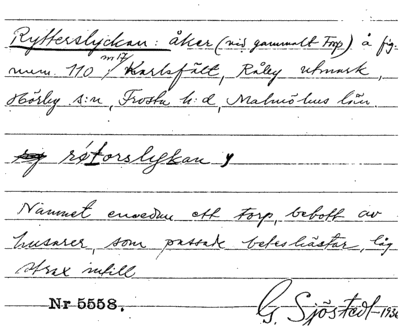 Rytterslyckan: åker (vid gammalt torp) å fig.
num. 110 m 17, Karlsfält, Råby utmark,
Hörby s:n, Frosta h:d, Malmöhus län
Namnet emedan ett torp, bebott av
husarer, som passade beteshästar, låg
strax intill
Nr 5558.
G. Sjöstedt 1936